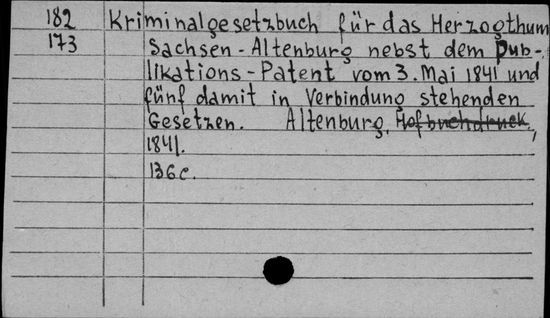 182 Kriminalgesetzbuch für das Herzogthum
173 Sachsen-Altenburg nebst dem Pub-
likations-Patent vom 3. Mai 1841 und
fünf damit in Verbindung stehenden
Gesetzen. Altenburg, Hofbuchdruck,
1841.
136c.